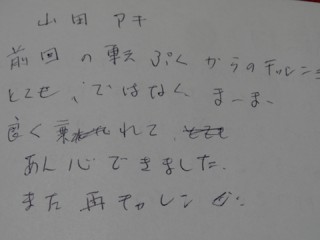 山田 アキ
前回 の 乗えぷく からの チャレンジ
とても、ではなく、まーま、
良く 乗れて
あん心できました.
また 再チャレンジ..